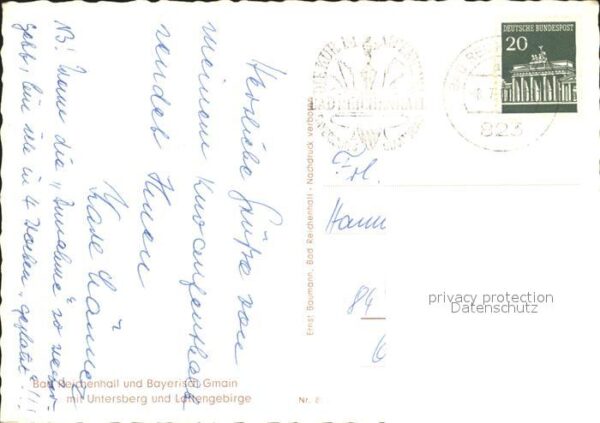 DEUTSCHE BUNDESPOST
20
823
Herzliche Grüße von
meinem
sendet Ihnen
NB! Wenn die "Zunahme" so weiter-
geht, bin ich in 4 Wochen "geplatzt"!!!
Frl.
Hann
84
privacy protection
Datenschutz
Ernst Baumann, Bad Reichenhall · Nachdruck verboten
Bad Reichenhall und Bayerisch Gmain
mit Untersberg und Lattengebirge
Nr. 8